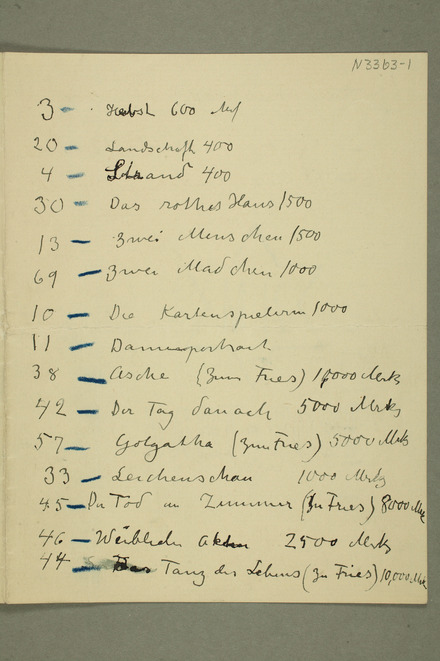 N3363-1
3 - Herbst 600 Mk
20 - Landschaft 400
4 - Strand 400
30 - Das rothes Haus 1500
13 - Zwei Menschen 1500
69 - Zwei Madchen 1000
10 - Die Kartenspielerin 1000
11 - Damenportrait
38 - Asche (Zum Fries) 10,000 Mrk
42 - Der Tag danach 5000 Mrk
57 - Golgatha (Zum Fries) 5000 Mrk
33 - Leichenschau 1000 Mrk
45 - Der Tod im Zimmer (Zu Fries) 8000 Mrk
46 - Weibliche Akte 2500 Mrk
44 - Tanz des Lebens (Zu Fries) 10,000 Mrk